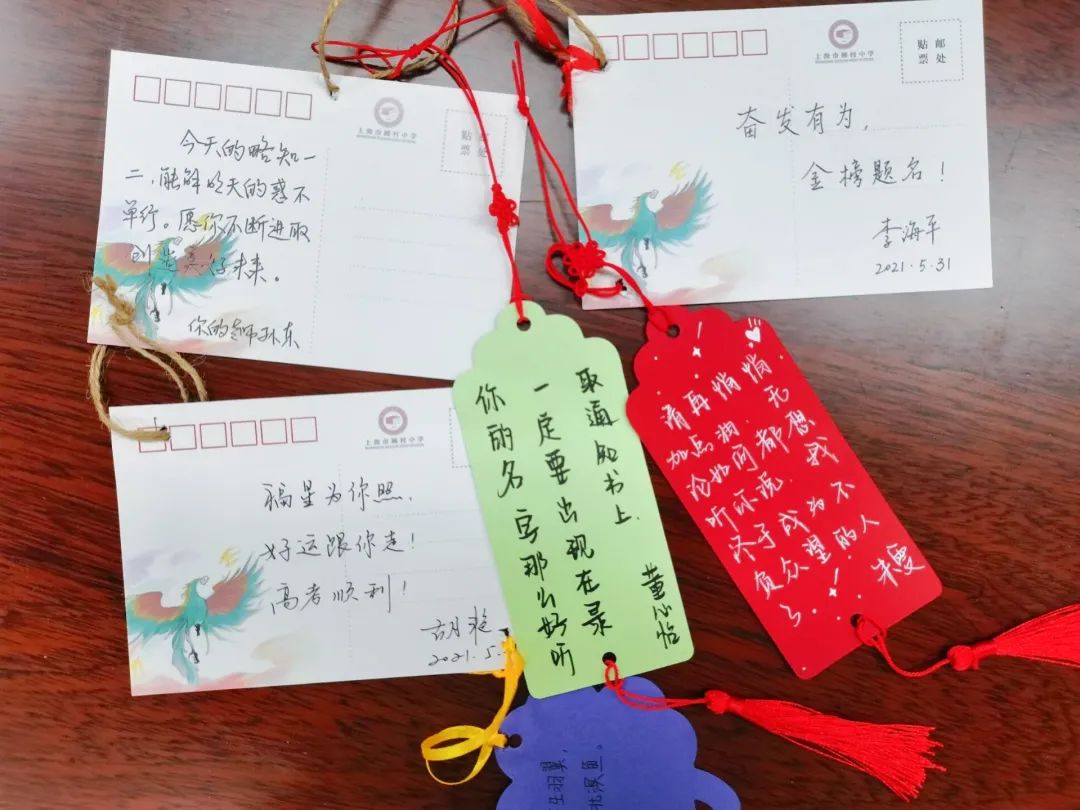 上海市顾村中学
贴 邮
票 处
今天的略知一
二,能解明天的惑不
单行。愿你不断进取
创造美好未来。
你的老师孙东
上海市顾村中学
贴 邮
票 处
奋发有为,
金榜题名!
李海平
2021.5.31
上海市顾村中学
福星为你照,
好运跟你走!
高考顺利!
胡艳
2021.5.
你的名字那么好听
一定要出现在录
取通知书上
董心怡
请再悄悄
加点油,无
论如何都想
听你说,我
终于成为不
负众望的人
了!
朱雯
生羽翼,
北溟鱼。